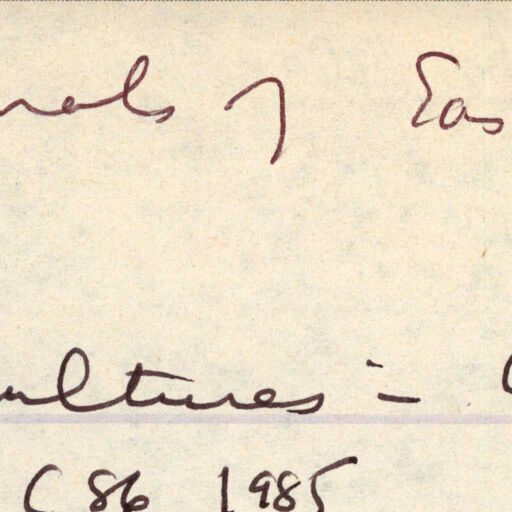 rals of Eas
ultures =
C86 1985